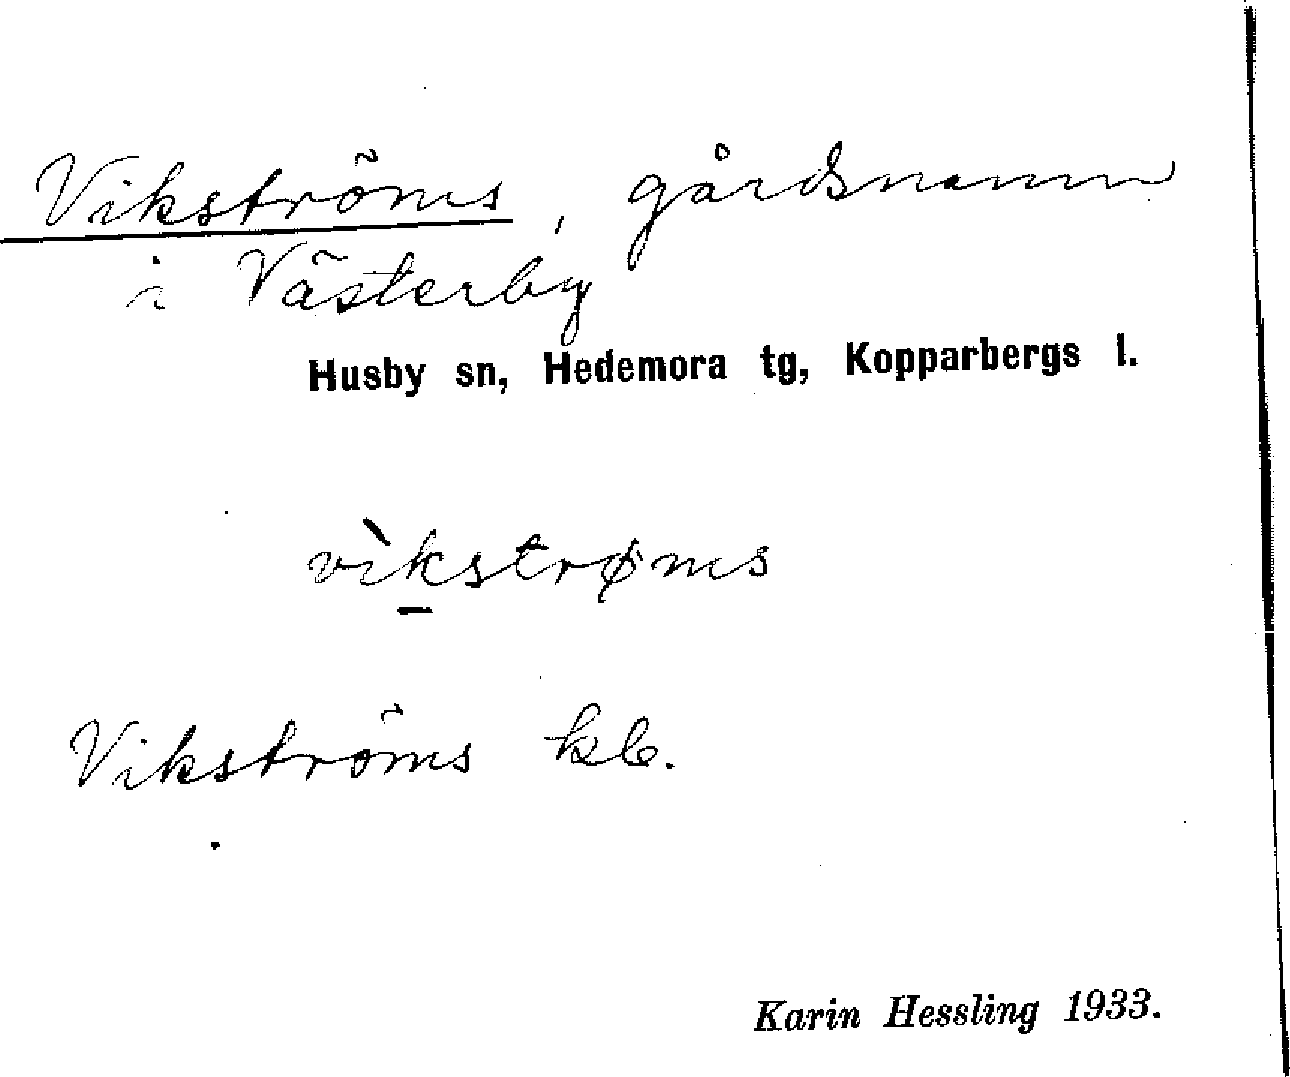 Vikströms, gårdsnamn
i Västerby
Husby sn, Hedemora tg, Kopparbergs l.
vìkstrøms
Vikströms kb.
Karin Hessling 1933.